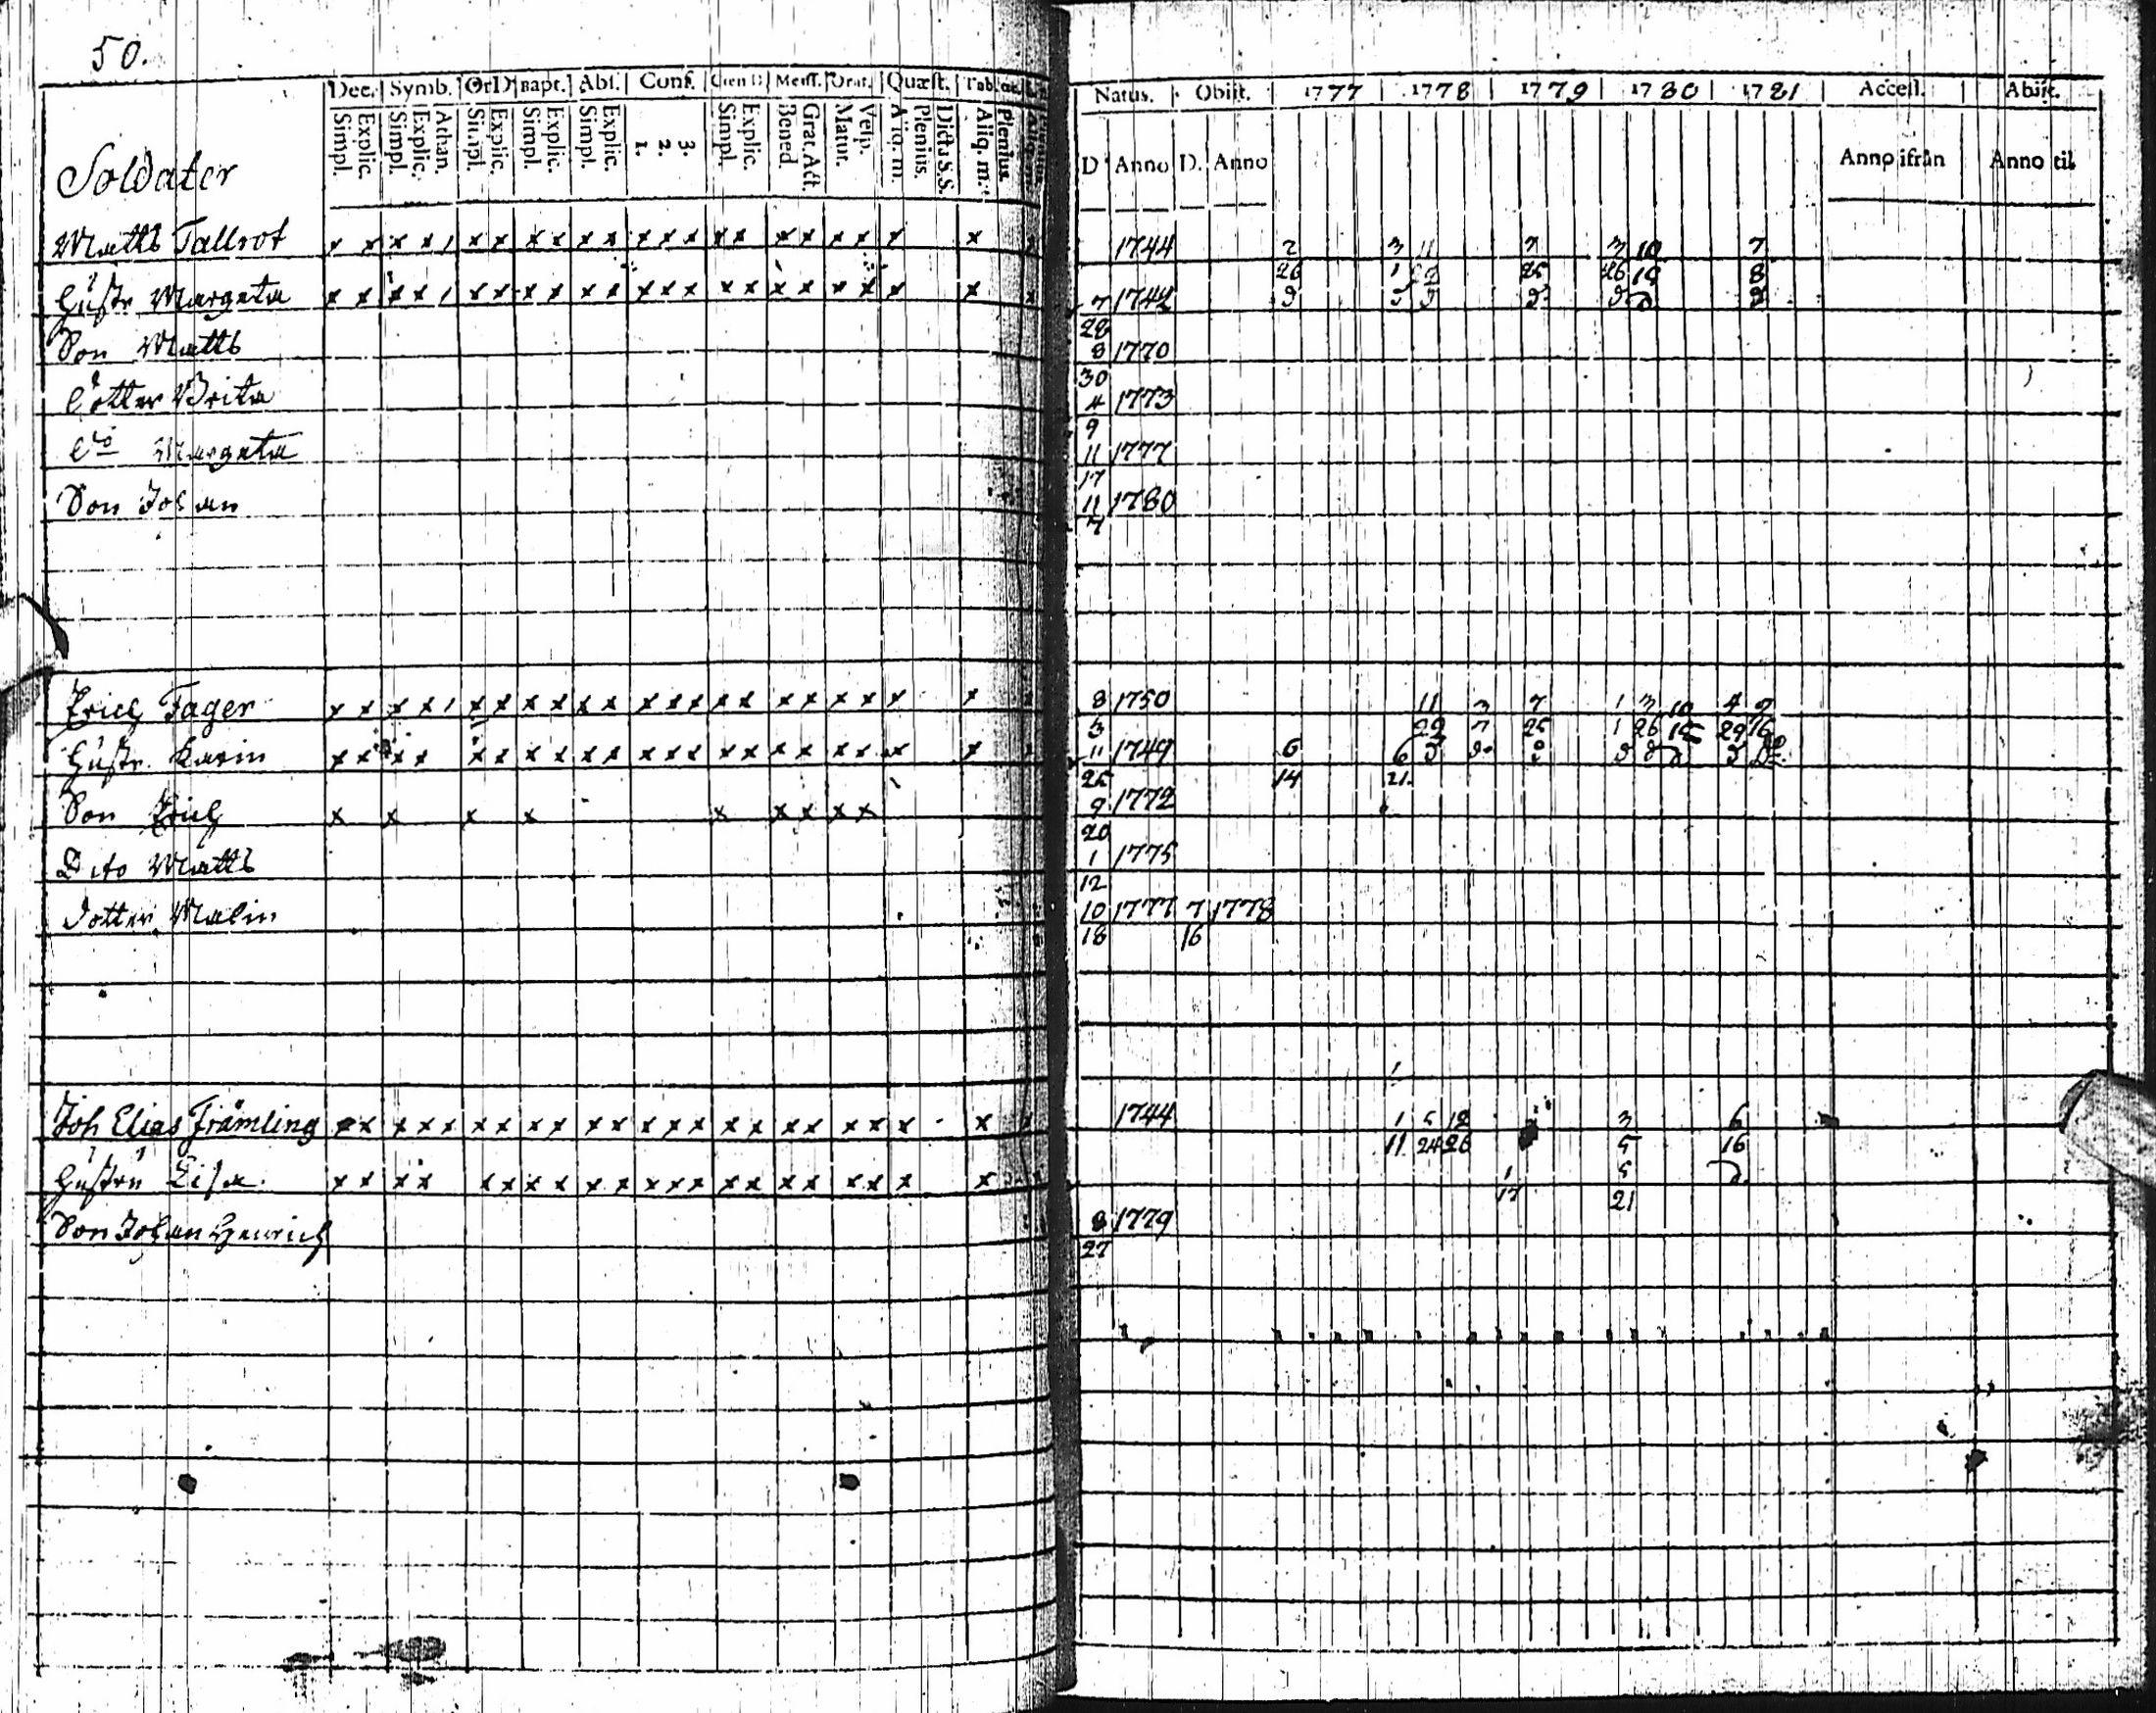 50.
Dec. Symb. Or.D. Bapt. Abs. Conf. Cœn.D. Mens. Orat. Quæst. Natus. Obiit. 1777 1778 1779 1780 1781 Access. Abiit.
Simpl. Explic. Simpl. Explic. Athan. Simpl. Explic. Simpl. Explic. Simpl. Explic. 1. 2. 3. Simpl. Explic. Bened. Grat. Act. Matut. Vesp. Aliq. m. Plenius. Dicta S.S. Aliq. m. Plenius. D Anno D. Anno Anno ifrån Anno til
Soldater
Matts Tallrot x x x x / x x x x x x x x x x x x x x x x x 1744 2 3 11 7 3 10 7
26 1 29 25 26 19 8
Hustr Margeta x x x x / x x x x x x x x x x x x x x x x x 7 1742
28
Son Matts 8 1770
30
Dotter Brita 4 1773
9
Do Margeta 11 1777
17
Son Johan 11 1780
7
Eric Fager x x x x / x x x x x x x x x x x x x x x x x 8 1750 11 3 7 1 3 10 4 9
3 29 7 25 1 26 15 29 16
Hustr. Karin x x x x x x x x x x x x x x x x x x x x x 11 1749 6 6
25 14 21
Son Eric x x x x x x x x x 9 1772
20
Dito Matts 1 1775
12
Dotter Malin 10 1777 7 1778
18 16
Joh Elias Främling x x x x x x x x x x x x x x x x x x x x x x 1744 1 5 12 3 6
11 24 26 5 16
Hustru Lisa x x x x x x x x x x x x x x x x x x x x x 1 5
17 21
Son Johan Henrich 8 1779
27